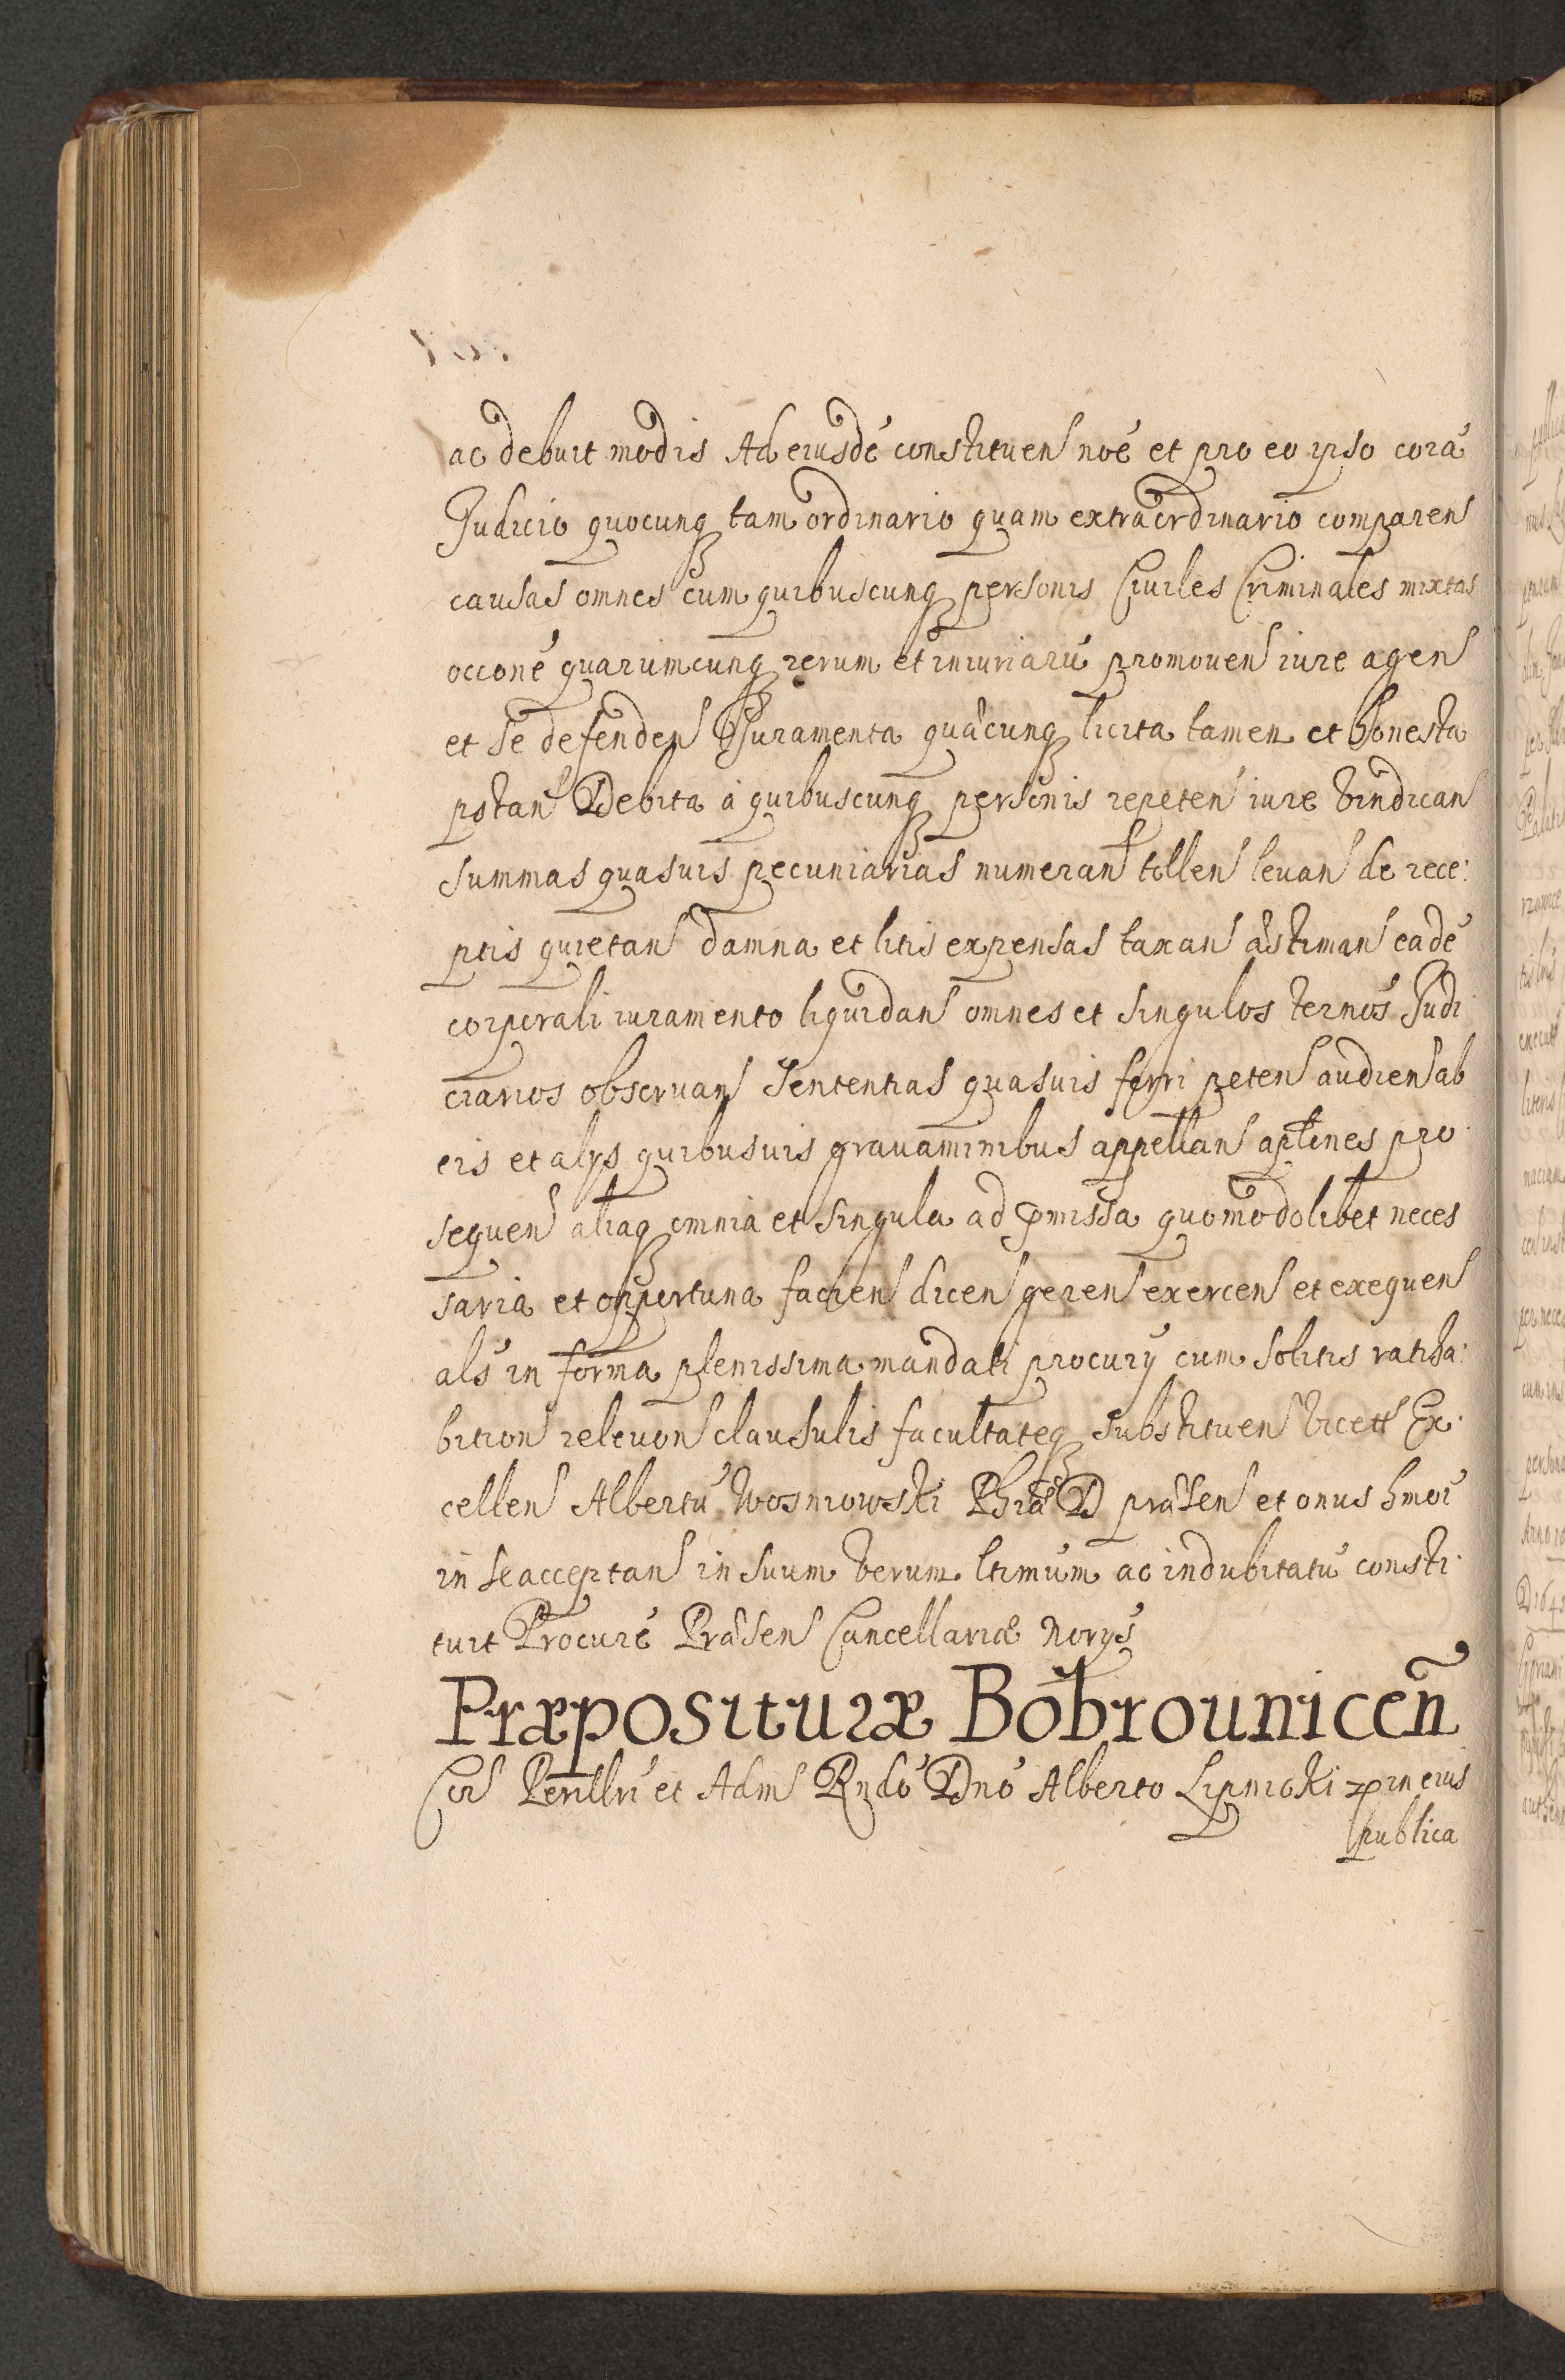 ac debuit modis Ad eiusdē constituen noē et pro eo ipso corā
Judicio quocunq tam ordinario quam extraordinario comparen
causas omnes cum quibuscunq personis Civiles Criminales mixtas
occonē quarumcunq rerum et iniuriarū promouen iure agen
et se defenden Juramenta quæcunq licita tamen et honesta
pstan Debita à quibuscunq personis repeten iure vindican
summas quasuis pecuniarias numeran tollen leuan de rece:
ptis quietan damna et litis expensas taxan æstiman eadē
corporali iuramento liquidan omnes et singulos ternos Judi
ciarios obseruan sententias quasuis ferri peten audien ab
eis et alys quibusuis grauaminibus appellan aplines pro
sequen aliaq omnia et singula ad pmissa quomodolibet neces
saria et opportuna facien dicen geren exercen et exequen
als in forma plenissima mandati procurij cum solitis ratiha:
bition releuon clausulis facultateq substituen vicett Ex:
cellen Albertū Wosniowski Phiæ D præsen et onus hmoi
in se acceptan in suum verum ltimum ac indubitatū consti:
tuit Procurē Præsen Cancellariæ norijs
Præposituræ Bobrounicen̄
Cor Perillri et Adm Rndo Dno Alberto Lipnicki p in eius
publica